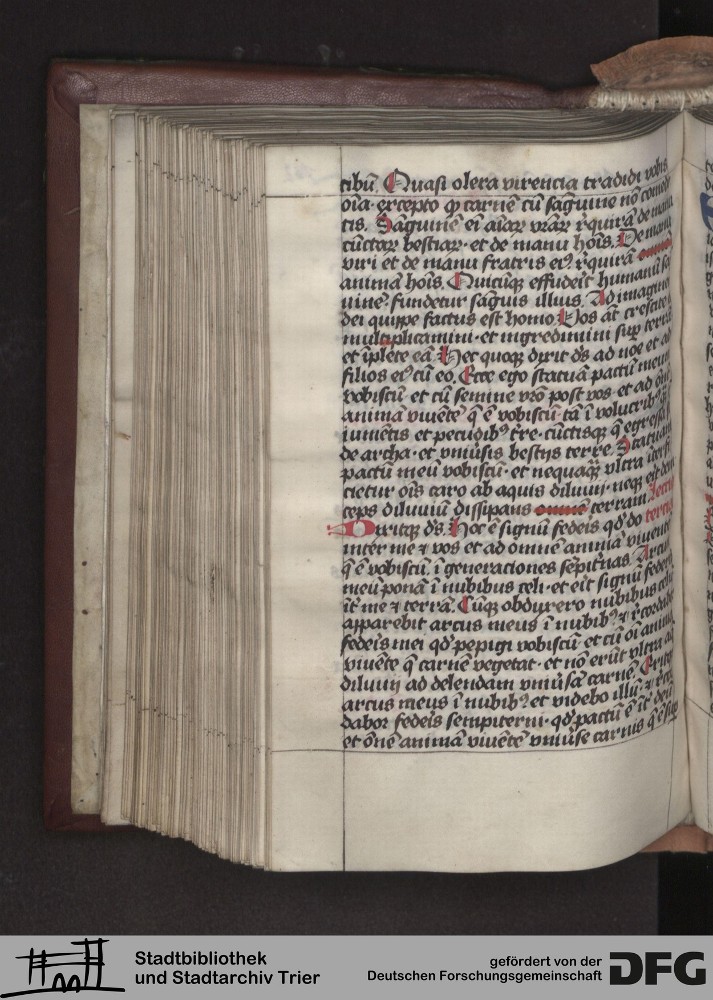 tibꝰ. Quasi olera virencia tradidi vobis
oīa· excepto qͥ carnē cū saguīne nō comede
tis. Sāguinē eī aīaꝝ vr̄aꝝ reqͥrā de manu
cūctaꝝ bestiaꝝ· et de manu hoīs. De manu
viri et de manu fratris eiꝰ reqͥrā
animā hoīs. Quicūqꝫ effuderit humanū sā
guinē· fundetur sāguis illius. Ad imaginē
dei quippe factus est homo. Vos āt crescite
multiplicamini· et ingredimini suꝑ terrā
et īplete eā. Hec quoqꝫ dixit dꝰs ad noe et ad
filios eiꝰ cū eo. Ecce ego statuā pactū meū
vobiscū· et cū semine vr̄o post vos· et ad
animā viuētē q̄ ē vobiscū· tā ī
iumētis et pecudibꝰ tr̄e· cūctisqꝫ q̄ egressa
de archa· et vniūsis bestijs terre. Statuam
pactū meū vobiscū· et nequaqͣꝫ vltra
cietur oīs caro ab aquis diluuij· neqꝫ erit dein
ceps diluuiū dissipans terram. Lectio
Dixitqꝫ dꝰs. Hoc ē signū federis qd̄ do tercia
inter me ⁊ vos et ad omnē animā viuentē
q̄ ē vobiscū ī generaciones sēpiternas. Arcū
meū ponā ī nubibus celi· et erit signū federis
īt̄ me ⁊ terrā. Cūqꝫ obduxero nubibus celū
apparebit arcus meus ī nubibꝰ· ⁊ recordabor
federis mei qd̄ pepigi vobiscū· et cū oī anima
viuēte q̄ carnē vegetat· et nō erūt vltra aq̄
diluuij ad delendam vniūsā carnē. Eritqꝫ
arcus meus ī nubibꝰ· et videbo illū· ⁊ recor
dabor federis sempiterni· qd̄ pactū ē īt̄ deū
et ōnē animā viuētē vniūse carnis q̄ ē suꝑ
Stadtbibliothek
und Stadtarchiv Trier
gefördert von der
Deutschen Forschungsgemeinschaft
DFG